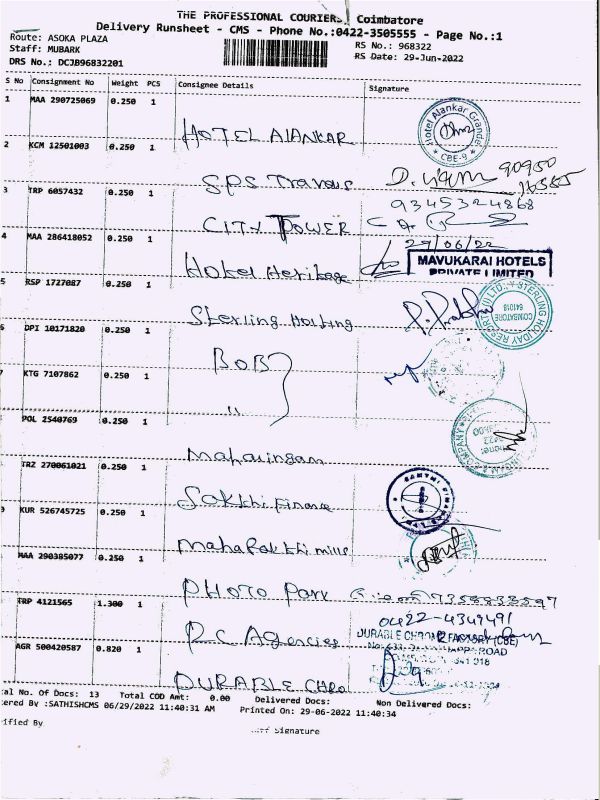 THE PROFESSIONAL COURIERS, Coimbatore
Delivery Runsheet - CMS - Phone No.:0422-3505555 - Page No.:1
Route: ASOKA PLAZA
RS No.: 968322
Staff: MUBARK
RS Date: 29-Jun-2022
DRS No.: DCJB96832201
S No Consignment No Weight PCS Consignee Details Signature
1 MAA 290725069 0.250 1
HOTEL AlANKAR
Hotel Alankar Grande
CBE-9
2 KCM 12501003 0.250 1
SPS Travels
90950
3 TRP 6057432 0.250 1
9345324868
CITY POWER
29/06/22
4 MAA 286418052 0.250 1
Hotel Heritage
MAVUKARAI HOTELS
PRIVATE LIMITED
5 RSP 1727087 0.250 1
Sterling Holiday
P. Prabhu
STERLING HOLIDAY RESORT
COIMBATORE
641018
6 DPI 10171820 0.250 1
BOB
7 KTG 7107862 0.250 1
"
POL 2540769 0.250 1
Mahalingam
TRZ 270061021 0.250 1
Sakthi Finance
SAKTHI FINANCE LTD
KUR 526745725 0.250 1
Mahasakthi mills
MAA 290385077 0.250 1
PHOTO Park
TRP 4121565 1.300 1
0422-4349491
RC Agencies
DURABLE CHROME FACTORY (CBE)
ROAD
641 018
AGR 500420587 0.820 1
DURABLE CHRO
al No. Of Docs: 13 Total COD Amt: 0.00 Delivered Docs: Non Delivered Docs:
ered By :SATHISHCMS 06/29/2022 11:40:31 AM Printed On: 29-06-2022 11:40:34
ified By
Signature